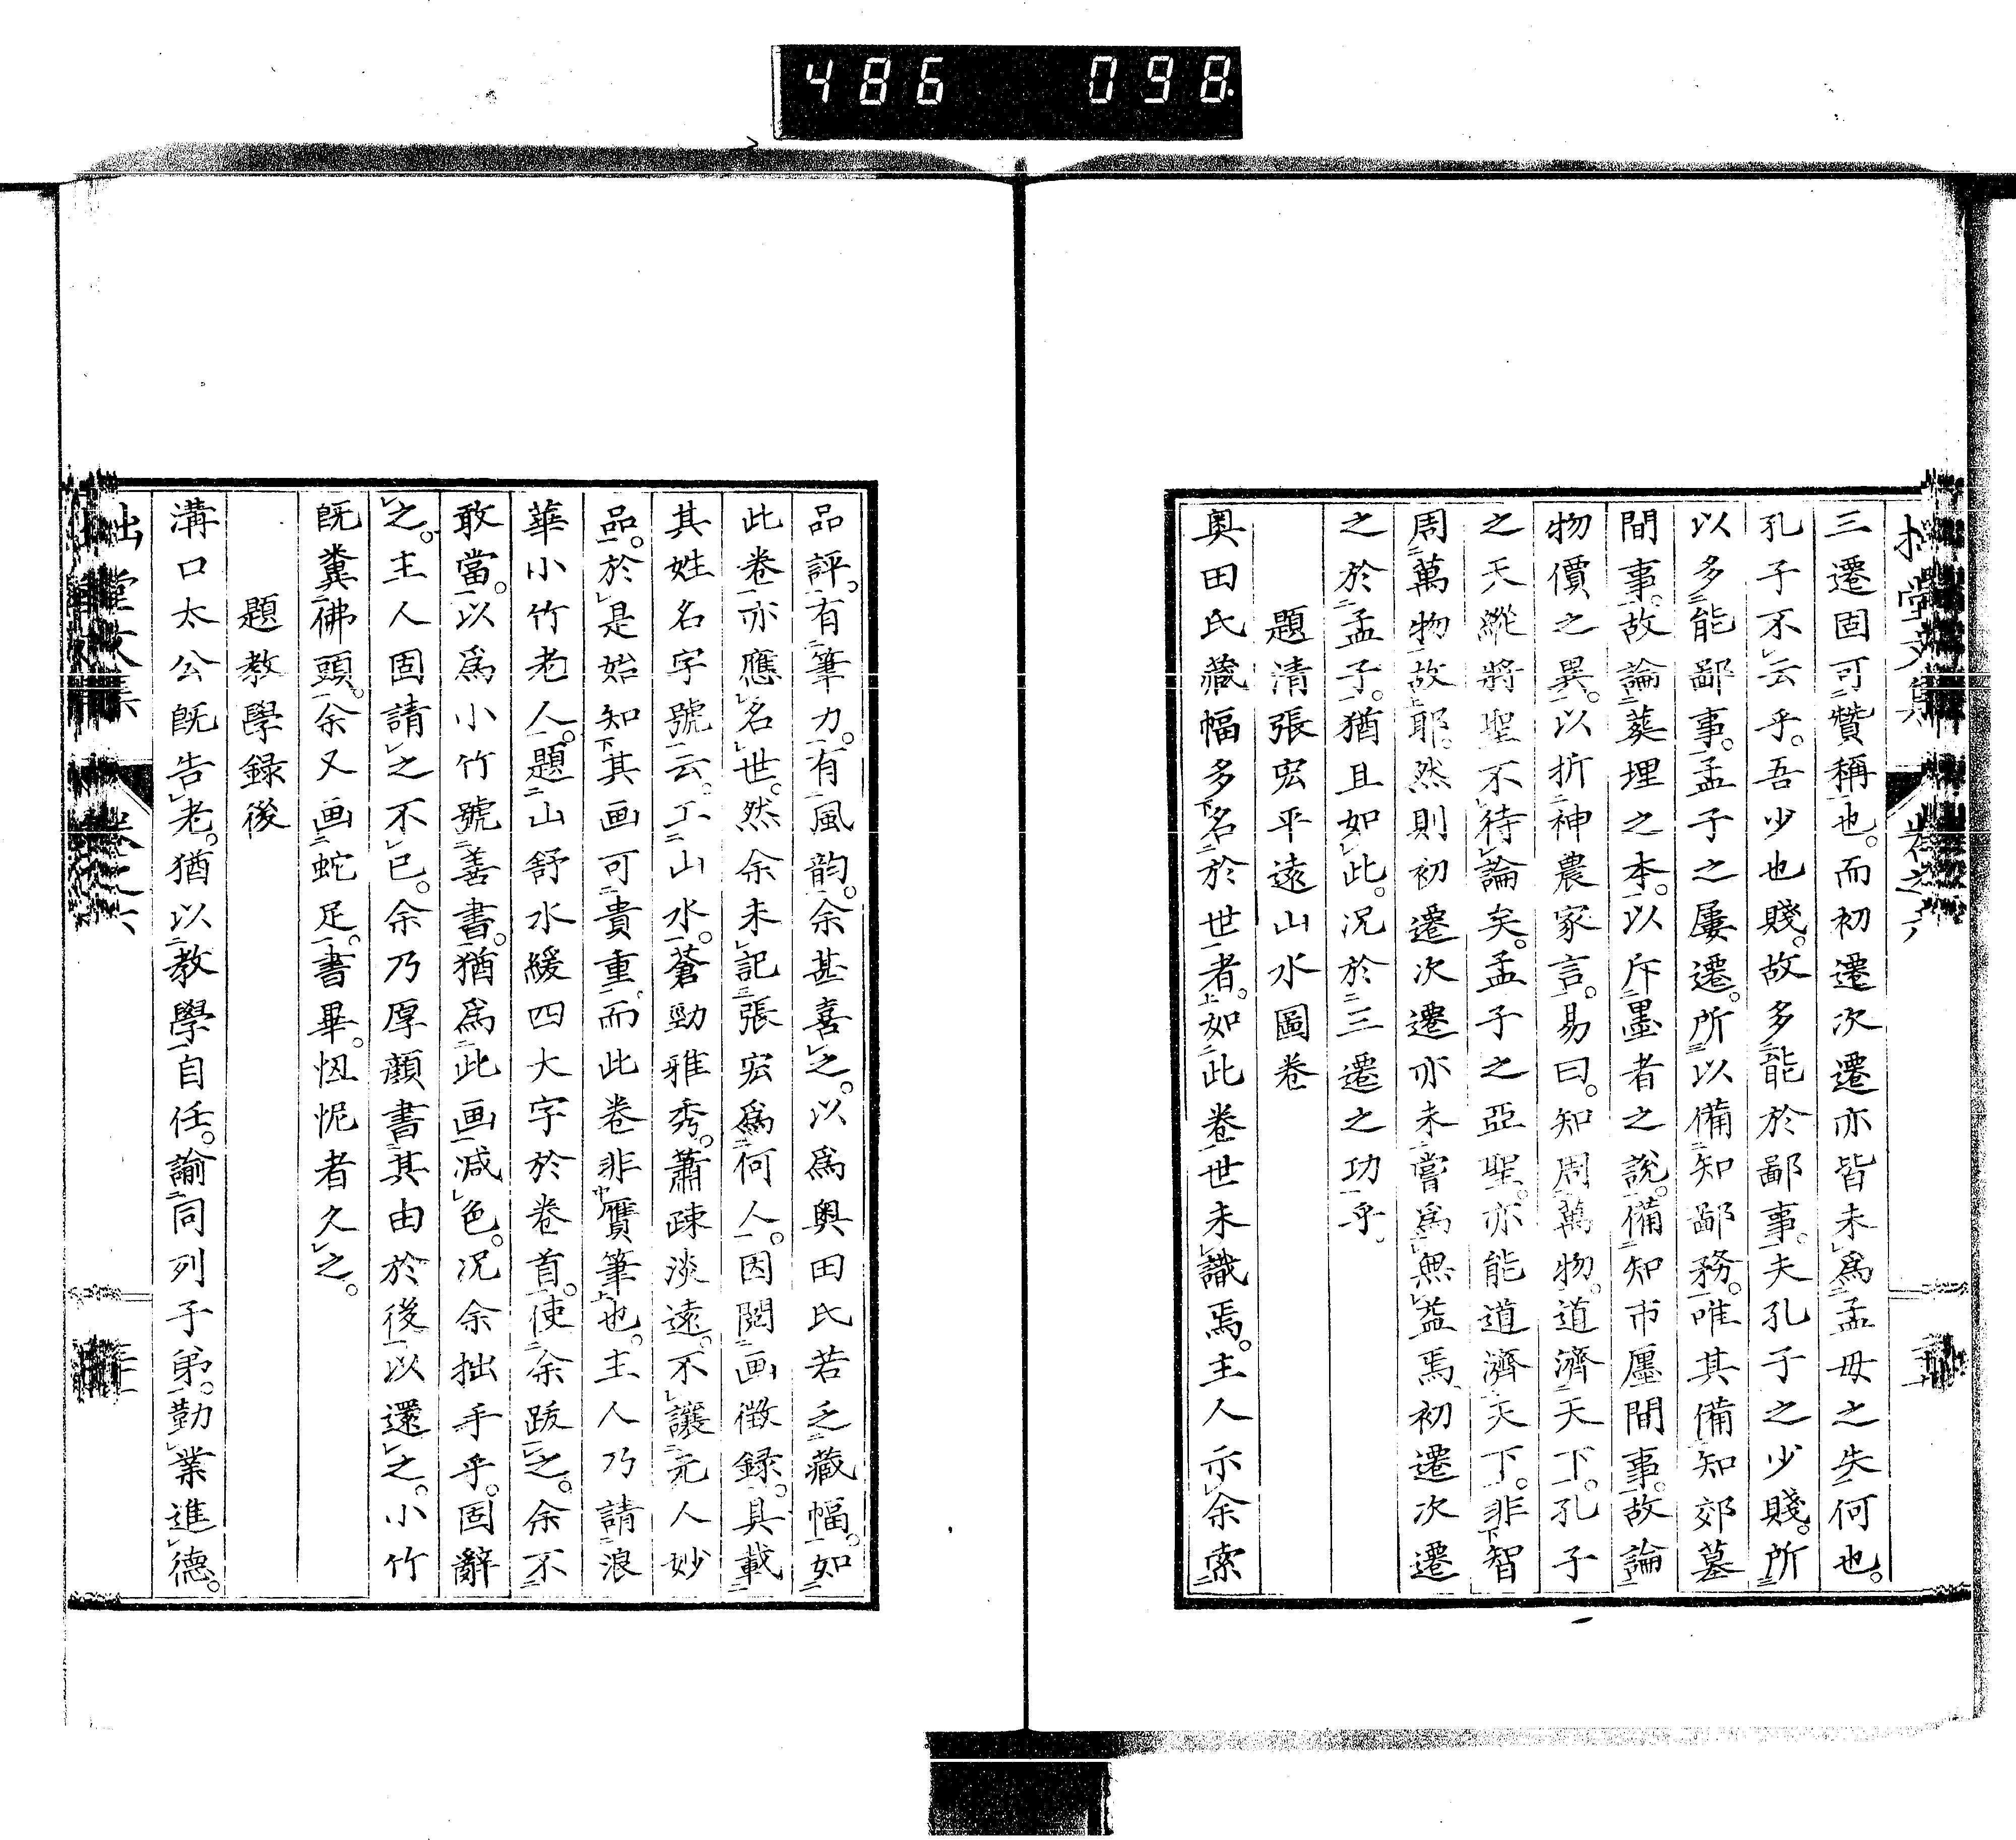 486 098
三遷固可贊稱也。而初遷次遷亦皆未爲孟母之失何也。
孔子不云乎。吾少也賤。故多能於鄙事。夫孔子之少賤。所
以多能鄙事。孟子之屢遷。所以備知鄙務。唯其備知郊墓
間事。故論葬埋之本。以斥墨者之說。備知市廛間事。故論
物價之異。以折神農家言。易曰。知周萬物。道濟天下。孔子
之天縱將聖不待論矣。孟子之亞聖。亦能道濟天下。非智
周萬物故耶。然則初遷次遷亦未嘗爲無益焉。初遷次遷
之於孟子。猶且如此。況於三遷之功乎。
題清張宏平遠山水圖卷
奥田氏藏幅多名於世者。如此卷世未識焉。主人示余索
品評。有筆力。有風韵。余甚喜之。以爲奥田氏若乏藏幅。如
此卷亦應名世。然余未記張宏爲何人。因閱画徴録。具載
其姓名字號云。工山水。蒼勁雅秀。蕭疎淡遠。不讓元人妙
品。於是始知其画可貴重。而此卷非贋筆也。主人乃請浪
華小竹老人。題山舒水緩四大字於卷首。使余跋之。余不
敢當。以爲小竹號善書。猶爲此画減色。況余拙手乎。固辭
之。主人固請之不已。余乃厚顔書其由於後以還之。小竹
既糞佛頭。余又画蛇足。書畢。忸怩者久之。
題教學録後
溝口太公既告老。猶以教學自任。諭同列子弟。勤業進德。
拙堂文集 卷之六